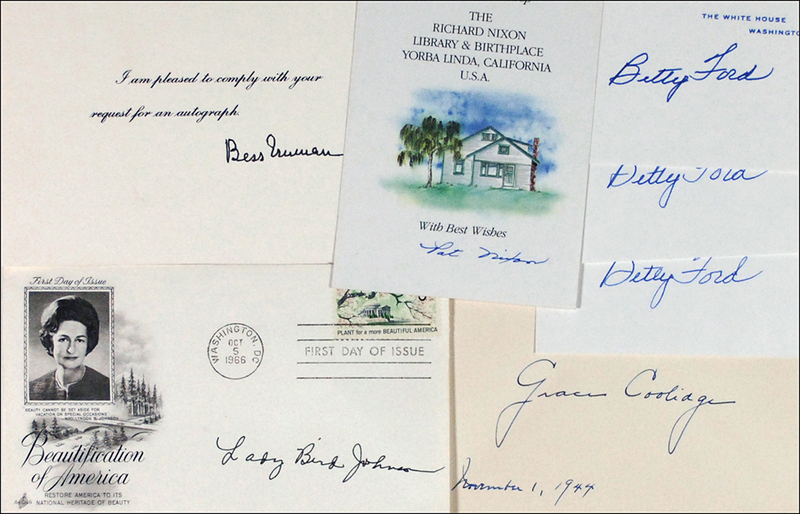 I am pleased to comply with your
request for an autograph.
Bess Truman
THE
RICHARD NIXON
LIBRARY & BIRTHPLACE
YORBA LINDA, CALIFORNIA
U.S.A.
With Best Wishes
Pat Nixon
THE WHITE HOUSE
WASHINGTO
Betty Ford
Betty Ford
Betty Ford
First Day of Issue
BEAUTY CANNOT BE SET ASIDE FOR
VACATION OR SPECIAL OCCASIONS
JOHNSON
Beautification
of America
RESTORE AMERICA TO ITS
NATIONAL HERITAGE OF BEAUTY
WASHINGTON, DC
OCT
5
1966
PLANT for a more BEAUTIFUL AMERICA
FIRST DAY OF ISSUE
Lady Bird Johnson
Grace Coolidge
November 1, 1944